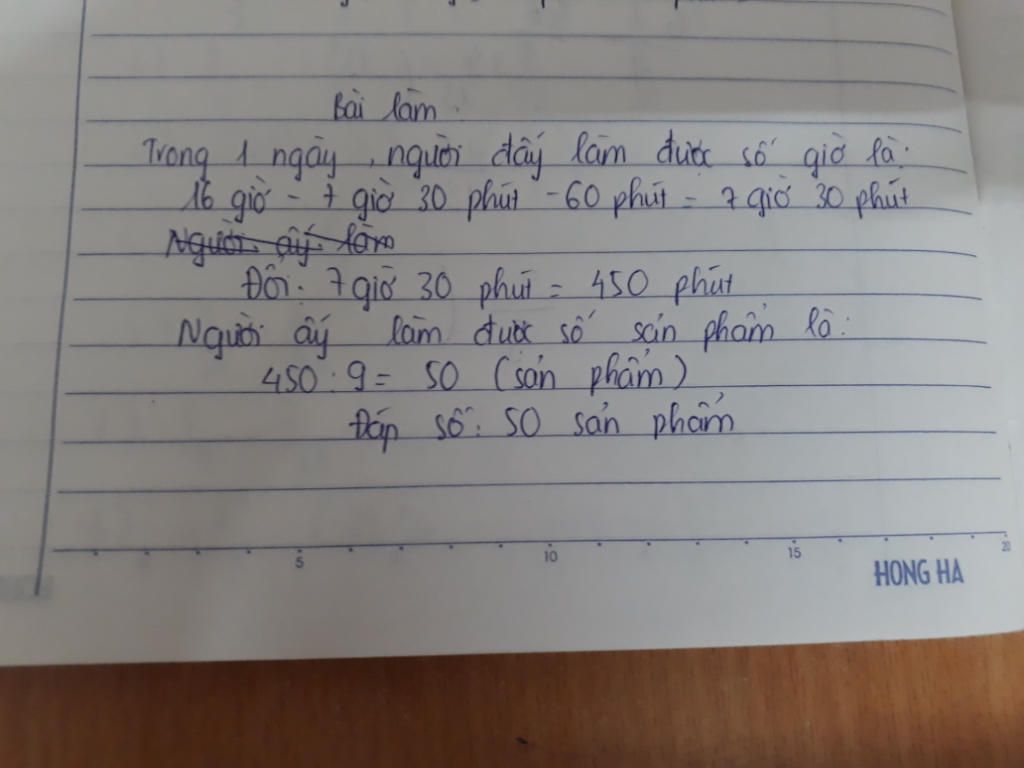 Bài làm.
Trong 1 ngày, người đấy làm được số giờ là:
16 giờ - 7 giờ 30 phút - 60 phút = 7 giờ 30 phút
Người ấy làm
Đổi: 7 giờ 30 phút = 450 phút
Người ấy làm được số sản phẩm là:
450 : 9 = 50 (sản phẩm)
Đáp số: 50 sản phẩm
5 10 15 20
HONG HA